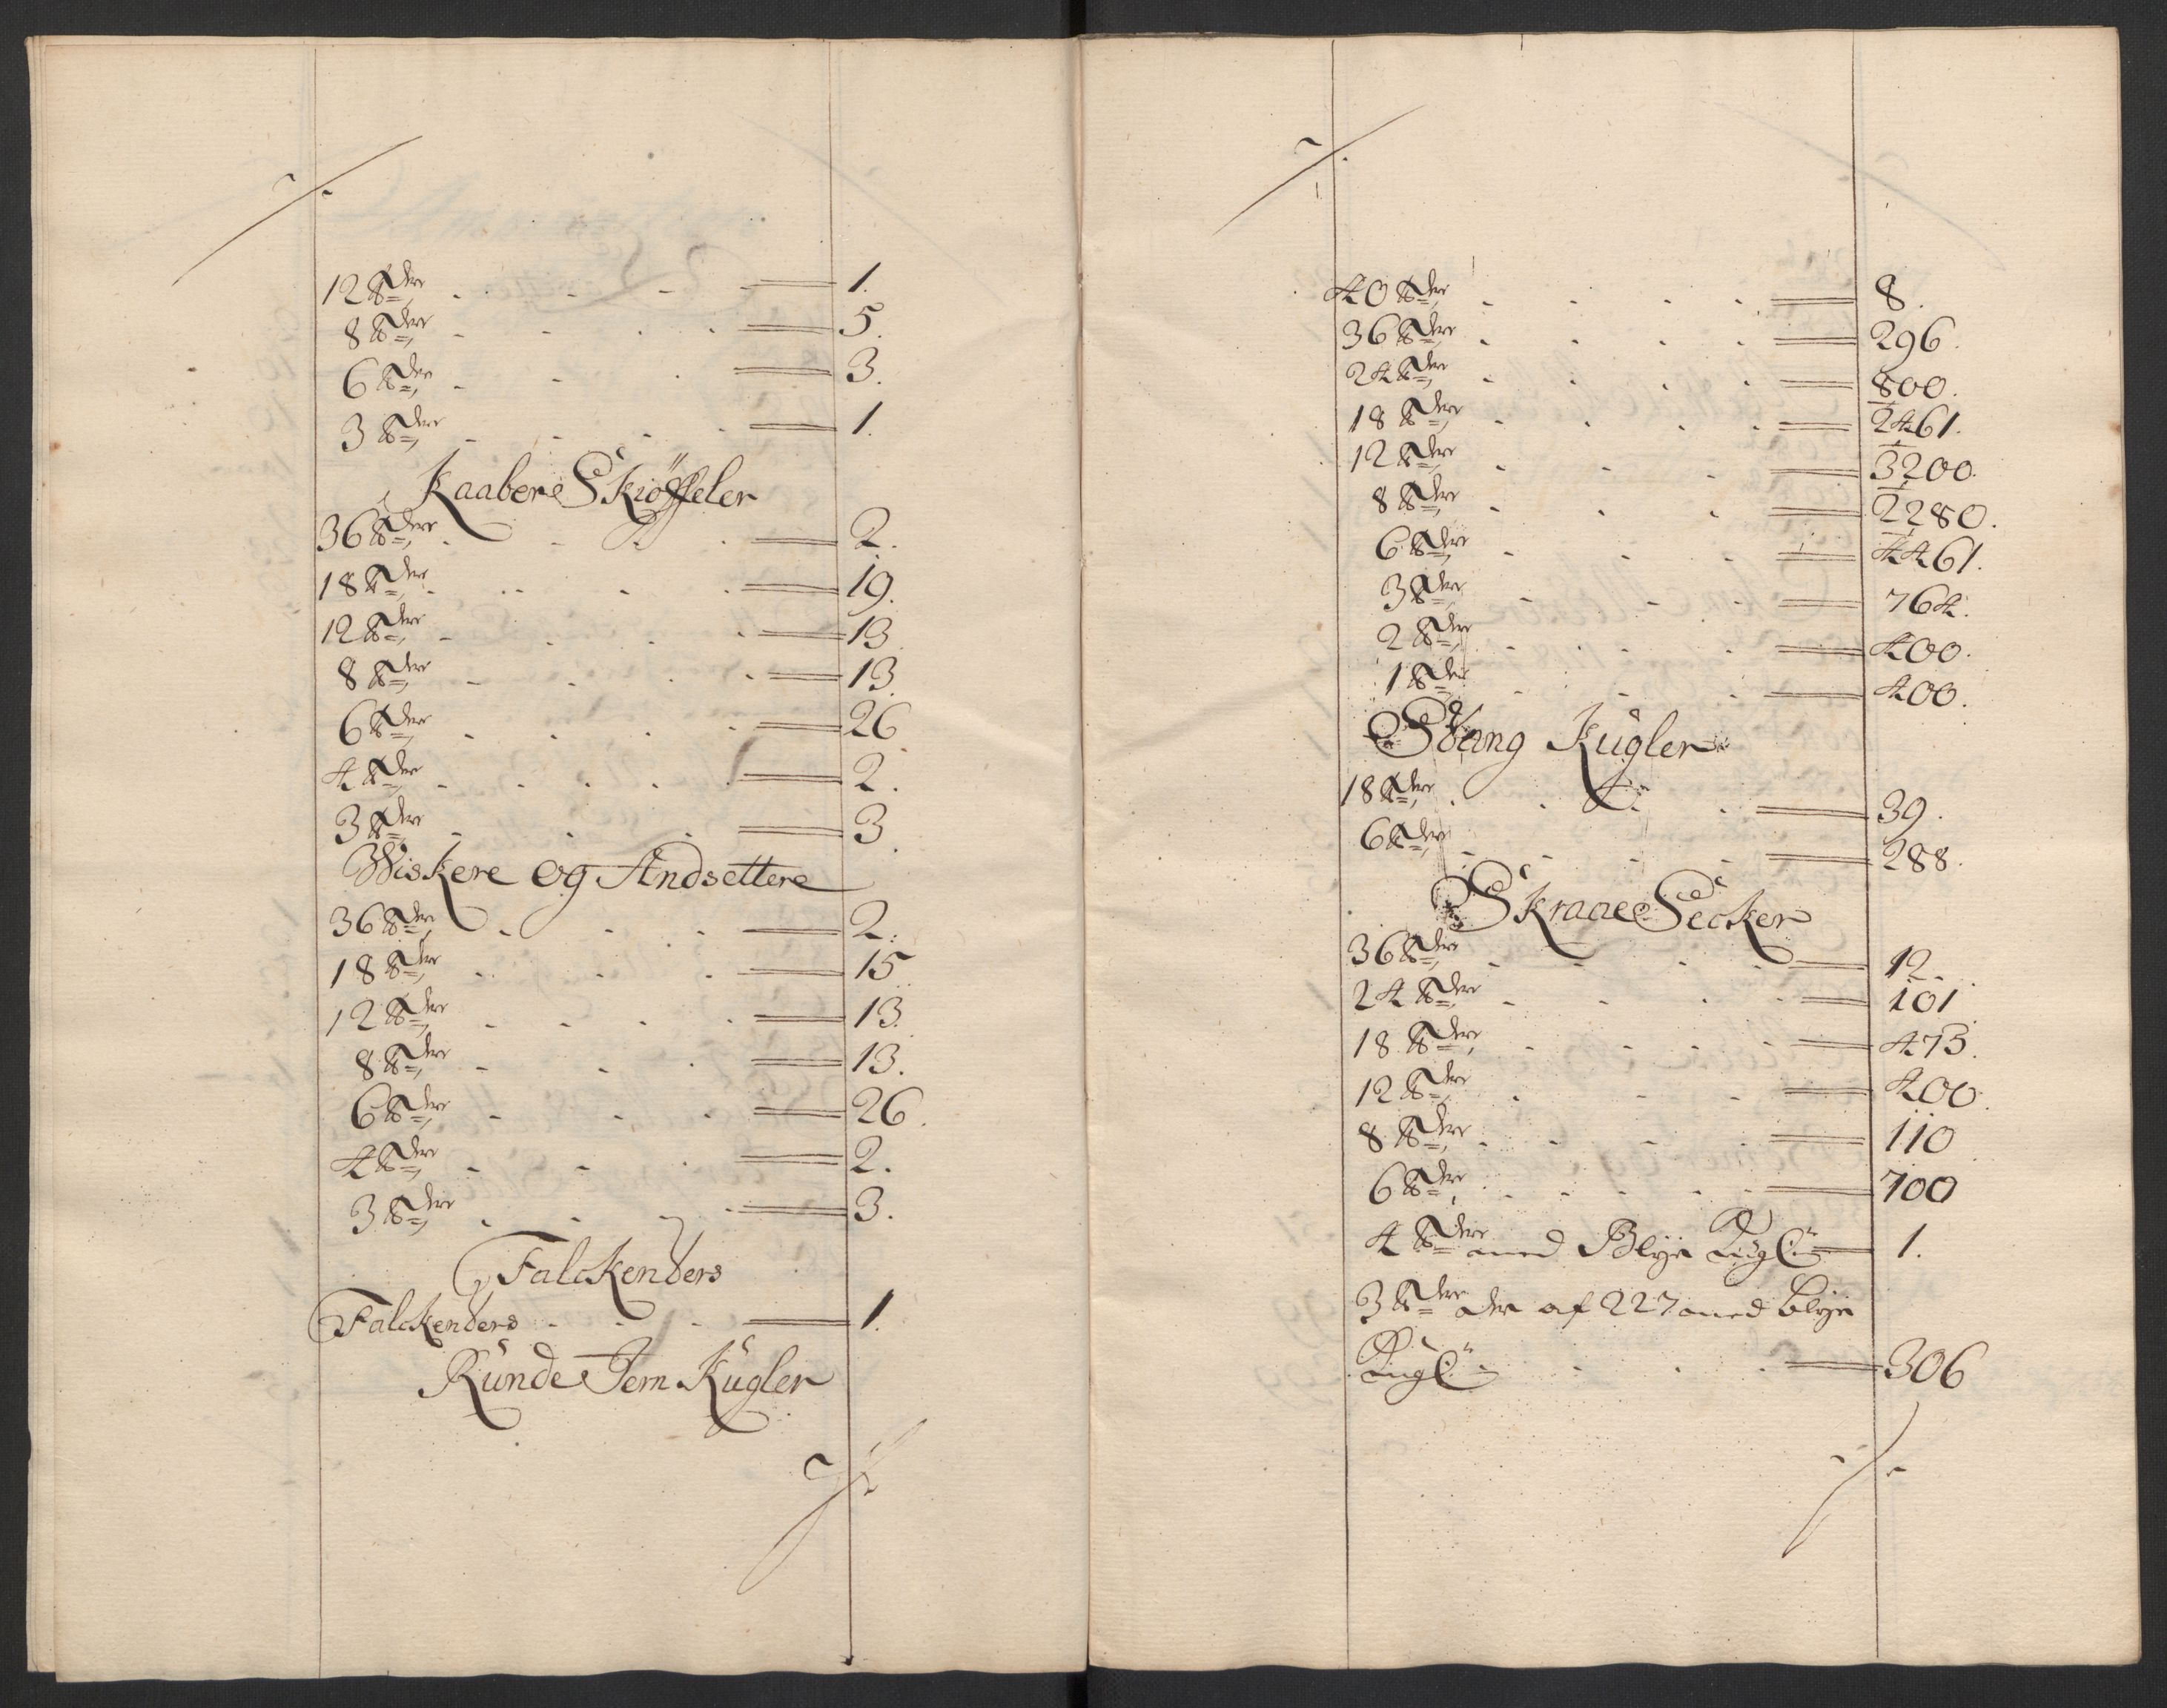 12 ℔der 1.
8 ℔der 5.
6 ℔der 3.
3 ℔der 1.
Kaabere Skiöffeler
36 ℔der 2.
18 ℔der 19.
12 ℔der 13
8 ℔der 13.
6 ℔der 26
4 ℔der 2.
3 ℔der 3.
Wiskere og Andsettere
36 ℔der 2.
18 ℔der 15
12 ℔der 13.
8 ℔der 13.
6 ℔der 26.
4 ℔der 2.
3 ℔der 3.
Falckenders
Falckenders 1.
Runde Jern Kugler
40 ℔der 8.
36 ℔der 296.
24 ℔der 800.
18 ℔der 2461.
12 ℔der 3200.
8 ℔der 2280.
6 ℔der 4461.
3 ℔der 764.
2 ℔der 400.
1 ℔der 400.
Stang Kugler
18 ℔der 39.
6 ℔der 288.
Skraae Secker
36 ℔der 12.
24 ℔der 101.
18 ℔der 473.
12 ℔der 400.
8 ℔der 110
6 ℔der 700
4 ℔der med Blye Kugl: 1.
3 ℔der der af 227 med blye
Kugl: 306